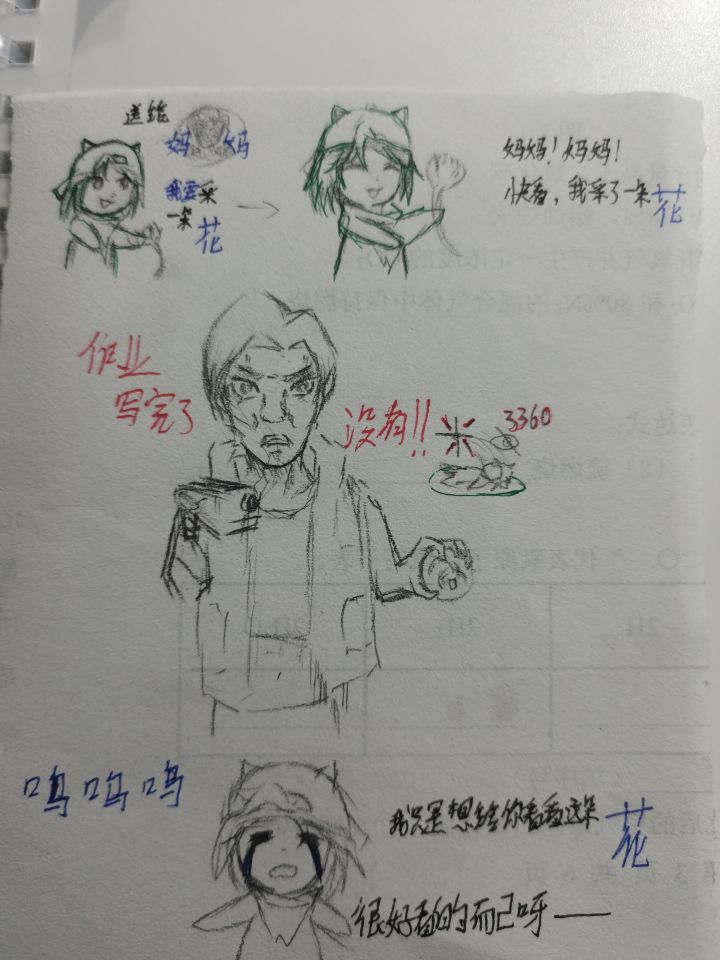 送给
妈 妈
我要采
一朵
花
妈妈！妈妈！
快看，我采了一朵花
作业
写完了
没有!!
3360
呜呜呜
我只是想给你看看这朵花
很好看的而已呀——